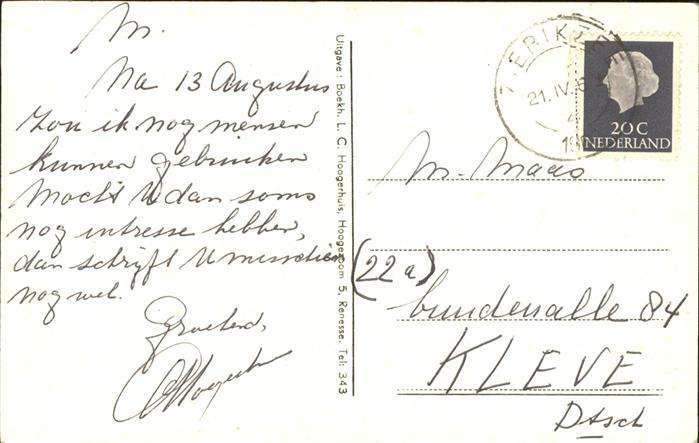 M.
Na 13 Augustus
zou ik nog mensen
kunnen gebruiken
Mocht U dan soms
nog intresse hebben,
dan schrijft U misschien
nog wel.
Groetend,
Uitgave: Boekh. L. C. Hoogerhuis, Hoogeboom 5, Renesse, Tel: 343
ZIERIKZEE
21.IV.6
20 C
NEDERLAND
M. Maas
(22a)
Lindenalle 84
KLEVE
Dtsch